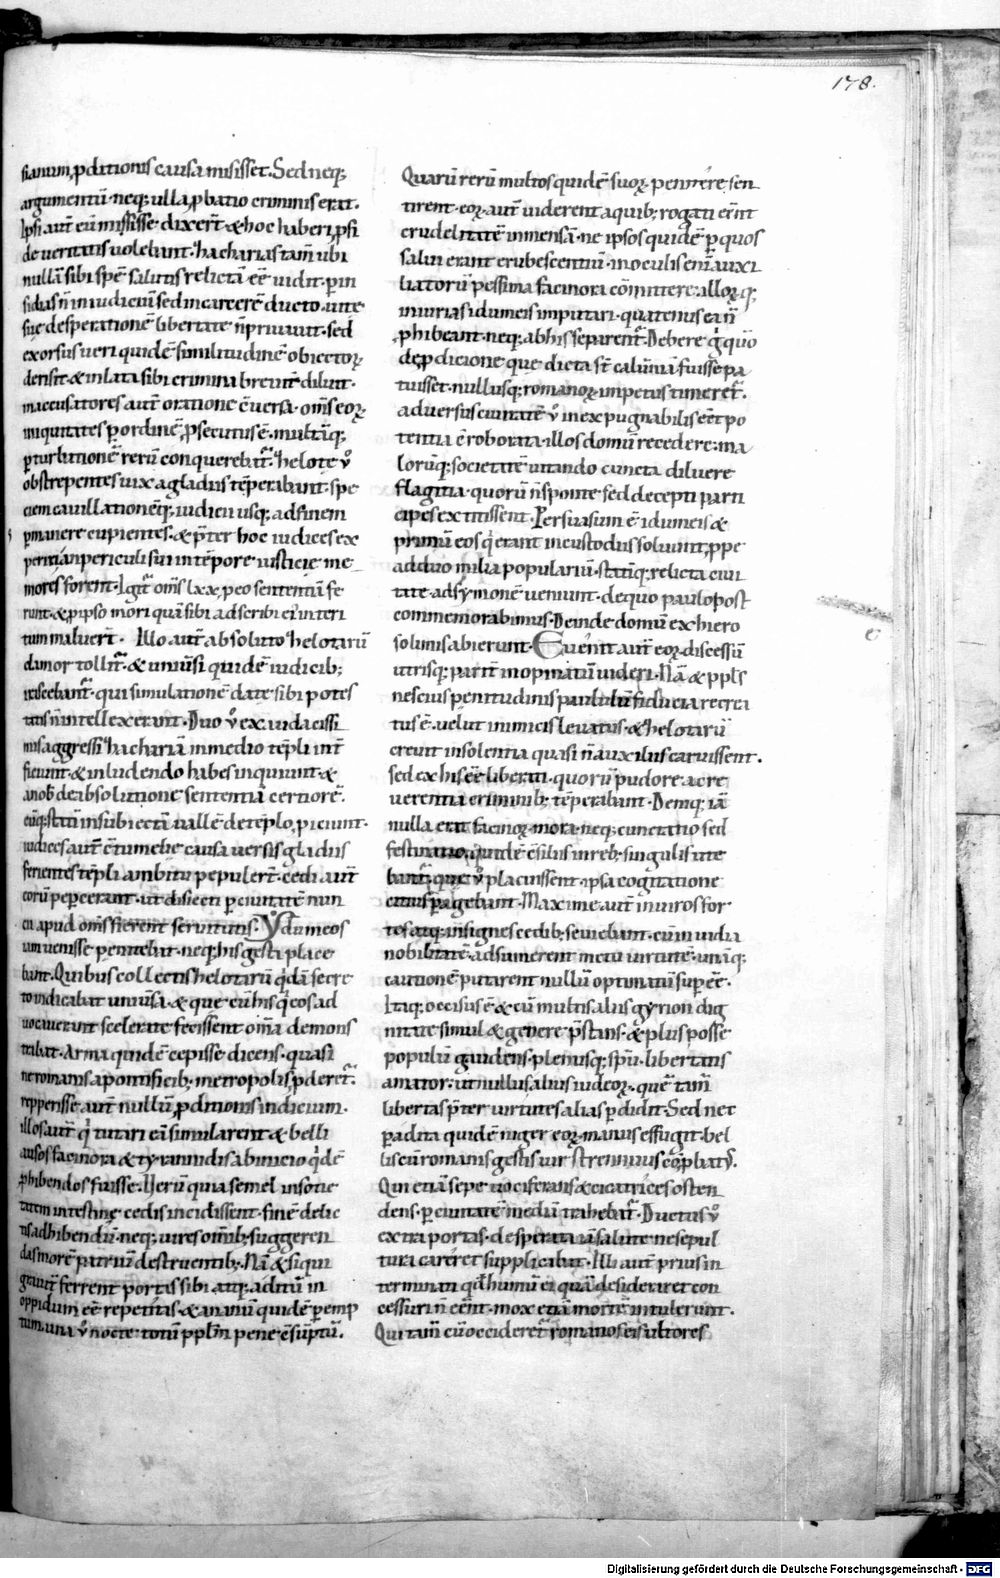 178.
sianum ꝓditionis causa misisset. Sed neq;
argumentū neq; ulla ꝓbatio criminis erat.
Ipsi aut̄ eū misisse dixer̄t & hoc haberi ꝓ si
de veritatis uolebant. hacharias tam̄ ubi
nullā sibi spē salutis relictā eē uidit. ꝑ in
sidias n̄ in iudiciū sed in carcerē ducto. uite
sue desperationē libertate n̄ priuauit. sed
exorsus ueri quidē similitudinē obiector̄
derisit. & inlata sibi crimina breuit̄ diluit.
in accusatores aut̄ oratione c̄uersa. om̄s eoꝝ
iniquitates ꝑ ordinē ꝓsecutus ē. multaq̄;
ꝑturbationē rerū conquerebat̄. helote ū
obstrepentes uix a gladiis tēperabant. spe
ciem cauillationēq; iudicii usq; ad finem
ꝑmanere cupientes. & p̄ter hoc iudices ex
periri an periculi sui in tēpore iusticie me
mores forent. Igit̄ om̄s lxx. ꝓ eo sententiā fe
runt. & ꝓ ipso mori quā sibi adscribi ei interi
tum maluer̄t. Illo aut̄ absoluto helotarū
clamor tollit̄. & uniūsi quidē iudicib;
irascebant̄. qui simulationē date sibi potes
tatis n̄ intellexerant. Duo ū ex audacissi
mis aggressi hachariā in medio tēpli int̄
ficiunt. & inludendo habes inquiunt &
a nob̄ de absolutione sententiā certiorē.
eūq; statū in subiectā uallē de tēplo ꝓiciunt.
iudices aut̄ c̄tumelie causa uersis gladiis
ferientes tēpli ambitu pepuler̄t. cedi aut̄
eorū pepcerant. ut disiecti ꝑ ciuitatē nun
cii apud om̄s fierent seruitutis. Ydumeos
iam uenisse penitebat. neq; his gesti place
bant. Quibus collectis helotarū q̇dā secre
to indicabat uniūsa. & que cū his q̇ eos ad
uocauerant scelerate fecissent om̄a demons
trabat. Arma quidē cepisse dicens. quasi
ne romanis a pontificib; metropolis ꝓderet̄.
repperisse aut̄ nullū ꝓditionis indicium.
illos aut̄ q̇ tutari eā simularent & belli
ausos facinora & tyrannidis ab inicio q̇dē
ꝓhibendos fuisse. Uerū quia semel in socie
tatem intestine cedis incidissent. finē delic
tis adhibendū. neq; uires om̄ib; suggeren
das morē patriū destruentib;. Nā & si qui
grauit̄ ferrent portas sibi atq; aditū in
oppidum eē repetitas. & an animū quidē ꝑemp
tum. una ū nocte totū pplm̄ pene c̄sūptū.
Quarū rerū multos quidē suoꝝ penitere sen
tirent. eoꝝ aut̄ uiderent a quib; rogati er̄nt
crudelitatē inmensā. ne ipsos quidē ꝑ quos
salui erant erubescentiū. in oculis enī auxi
liatorū pessima facinora cōmittere. illoꝝ q;
iniurias idumeis imputari. quatenus ea n̄
ꝓhibeant. neq; ab his separent̄. Debere g̊ quō
de ꝓdicione que dicta st̄ calūniā fuisse pa
tuisset. nullusq; romanoꝝ impetus timeret̄.
aduersus ciuitatē ū inexpugnabilis eēt po
tentia c̄roborata. illos domū recedere. ma
lorūq; societatē uitando cuncta diluere
flagitia. quorū n̄ sponte sed decepti parti
cipes extitissent. Persuasum ē idumeis &
primū eos q̇ erant in custodiis soluunt. ꝓpe
ad duo milia popularium. statīq; relicta ciui
tate ad sẏmonē ueniunt. de quo paulo post
commemorabimus. Deinde domū ex hiero
solimis abierunt. Euenit aut̄ eoꝝ discessū
utrisq; partī inopinatū uideri. Nā & ppls
nescius penitudinis paululū fiducia recrea
tus ē. uelut inimicis leuatus. & helotarū
creuit insolentia quasi n̄ auxiliis caruissent.
sed ex his eē liberati. quorū pudore ac re
uerentia criminib; tēperabant. Deniq; iā
nulla erat facinoꝝ mora neq; cunctatio sed
festinatio. quidē c̄siliis in reb; singulis ute
bant̄. que ū placuissent. ipsa cogitatione
citius ꝑagebant. Maxime aut̄ in uiros for
tes atq; insignes cedib; seuiebant. cū inuidia
nobilitatē adsumerent metu uirtutē. unāq;
cautionē putarent nullū optimatū superēē.
Itaq; occisus ē & cū multis aliis gyrion dig
nitate simul & genere p̄stans. & plus posse
populū gaudens. plenusq; spū. libertatis
amator. ut nullus alius iudeoꝝ. quē tam̄
libertas p̄ter uirtutes alias ꝑdidit. Sed nec
ꝑadita quidē niger eoꝝ manus effugit. bel
lis cū romanis gestis uir strennuus cōꝓbatꝰ.
Qui etiā sepe uociferans & cicatrices osten
dens. ꝑ ciuitatē mediū trahebat̄. Ductus ū
extra portas. desperata iā salute ne sepul
tura careret supplicabat. Illi aut̄ prius in
terminati qd̄ humū ei quā desideraret con
cessuri n̄ eēnt. mox etiā mortē intulerunt.
Qui tam̄ cū occideret̄ romanos eis ultores